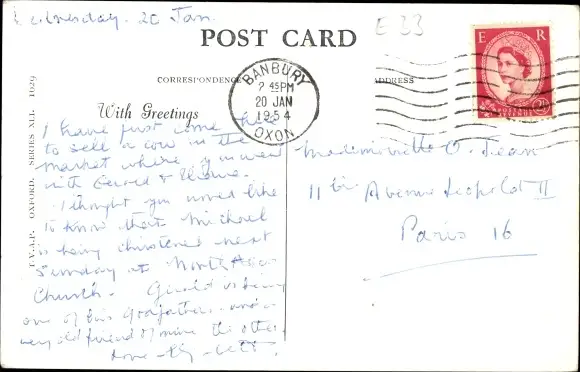 Wednesday. 20 Jan.
E 33
POST CARD
CORRESPONDENCE
ADDRESS
With Greetings
E R
POSTAGE REVENUE
2½
BANBURY
7 45PM
20 JAN
1954
OXON
SERIES XII. 1029
OXFORD.
I have just come here
to sell a cow in the
market where you went
with Gerald &
I thought you would like
to know that Michael
is being christened next
Sunday at North Aston
Church. Gerald is being
one of his Godfathers and a
very old friend of mine the other.
Love
Mademoiselle O. Jean
11 bis Avenue Leopold II
Paris 16